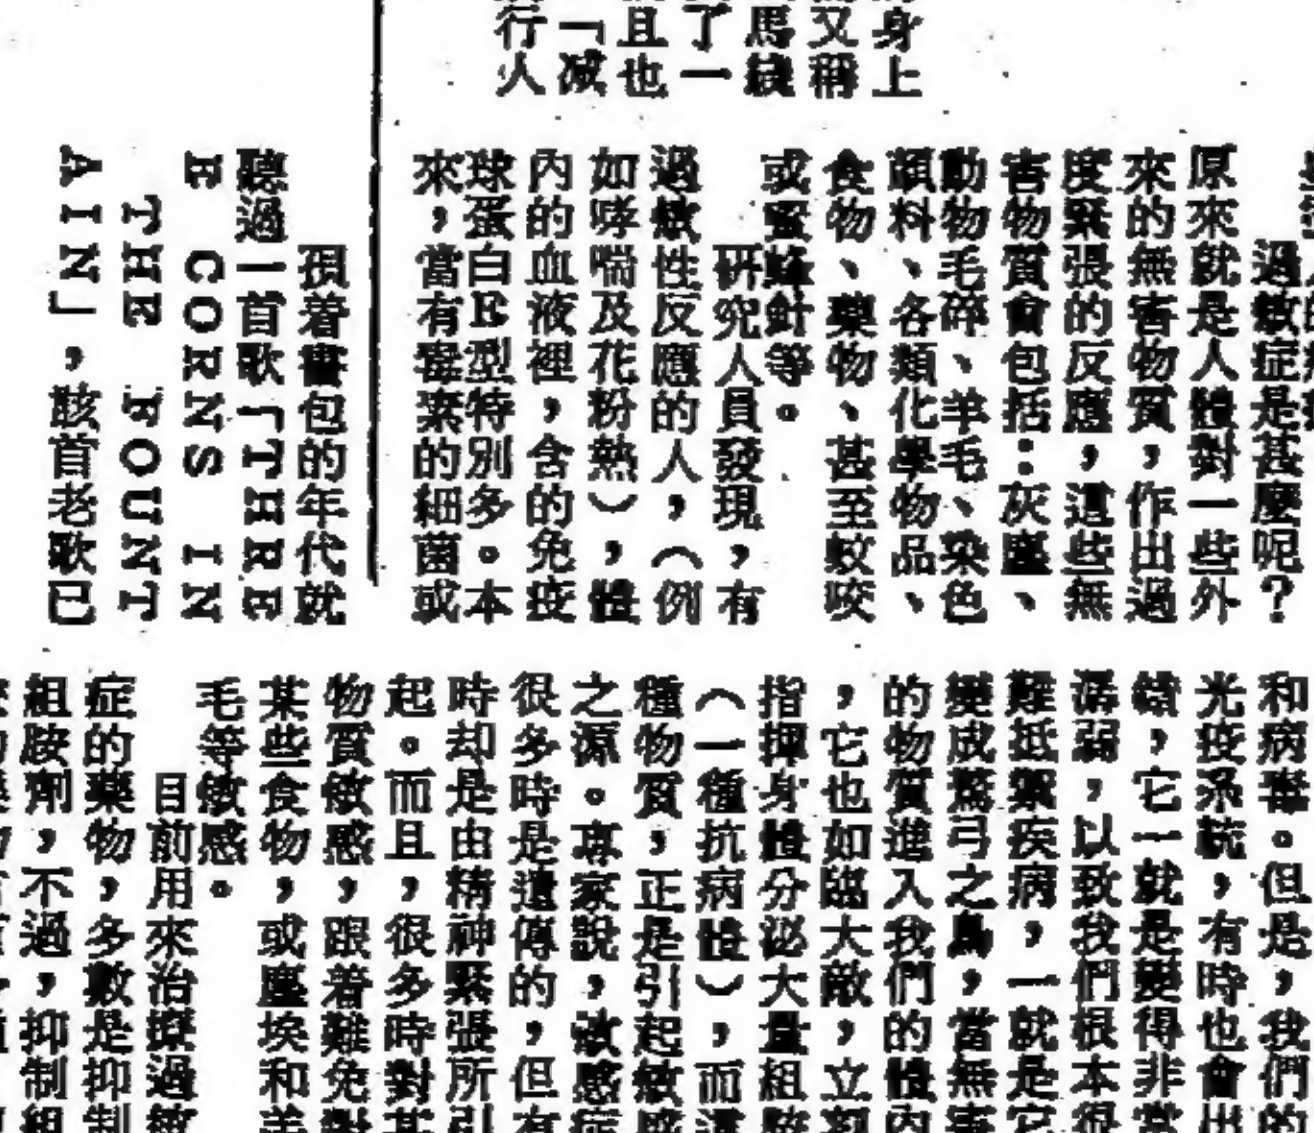 身上
又稱
馬
了一
且也
「减
行人
過敏症是甚麼呢？
原來就是人體對一些外
來的無害物質，作出過
度緊張的反應，這些無
害物質會包括：灰塵、
動物毛碎、羊毛、染色
顏料、各類化學物品、
食物、藥物、甚至蚊咬
或蜜蜂針等。
研究人員發現，有
過敏性反應的人，（例
如哮喘及花粉熱），體
內的血液裡，含的免疫
球蛋白E型特別多。本
來，當有害的細菌或
孭着書包的年代就
聽過一首歌「THRE
E CORNS IN
THE FOUNT
AIN」，該首老歌已
和病毒。但是，我們的
光疫系統，有時也會出
錯，它一就是變得非常
孱弱，以致我們根本很
難抵禦疾病，一就是它
變成驚弓之鳥，當無害
的物質進入我們的體內
，它也如臨大敵，立刻
指揮身體分泌大量組胺
（一種抗病體），而這
種物質，正是引起敏感
之源。專家說，敏感症
很多時是遺傳的，但有
時却是由精神緊張所引
起。而且，很多時對某
物質敏感，跟着難免對
某些食物，或塵埃和羊
毛等敏感。
目前用來治療過敏
症的藥物，多數是抑制
組胺劑，不過，抑制組